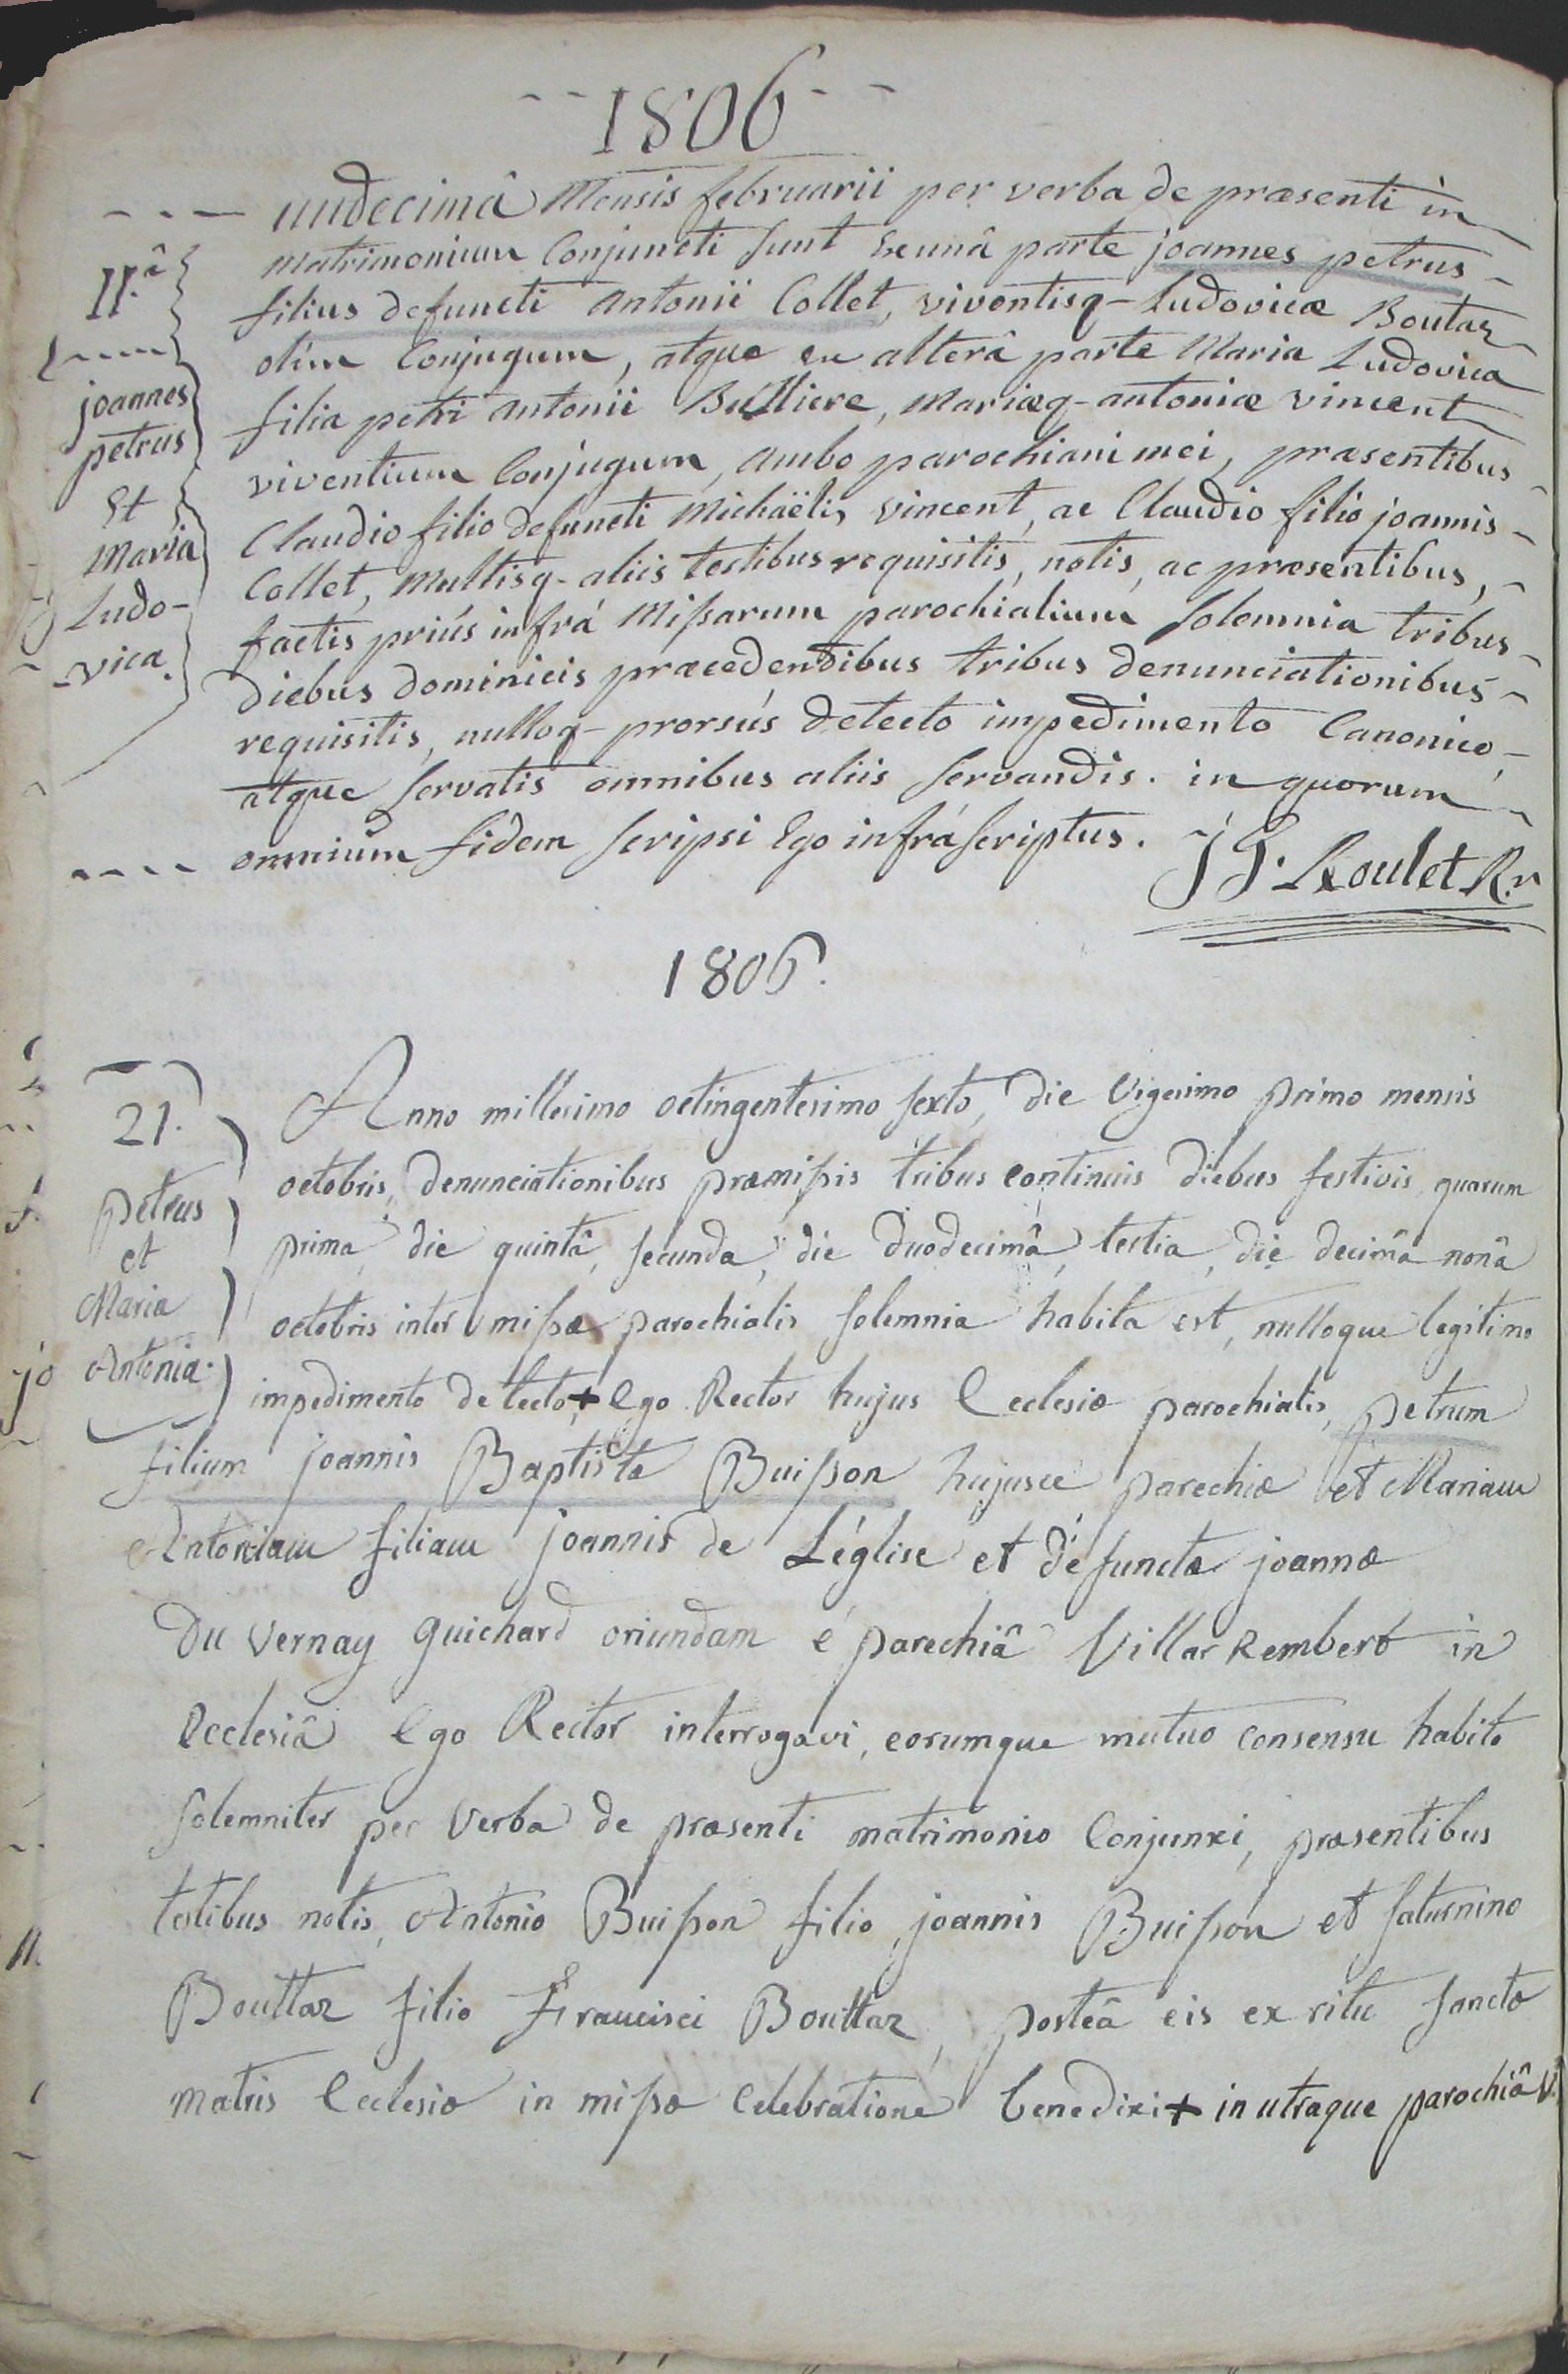 1806
undecimâ Mensis februarii per verba de præsenti in
matrimonium Conjuncti sunt ex unâ parte joannes petrus
filius defuncti antonii Collet, viventisq- Ludovicæ Boutaz
olim Conjugum, atque ex alterâ parte Maria Ludovica
filia petri antonii Bulliere, Mariæq- antoniæ vincent
viventium Conjugum, ambo parochiani mei, præsentibus
Claudio filio defuncti Michaëlis vincent, ac Claudio filio joannis
Collet, Multisq- aliis testibus requisitis, notis, ac præsentibus,
factis priùs infrá Missarum parochialium solemnia tribus
diebus dominicis præcedentibus tribus denunciationibus
requisitis, nulloq- prorsús detecto impedimento Canonico,
atque servatis omnibus aliis servandis. in quorum
omnium fidem scripsi Ego infrá scriptus.
J G. Roulet R.r
II.â
joannes
petrus
Et
Maria
Ludo-
-vica.
1806.
21.
petrus
et
Maria
Antonia.
Anno millesimo octingentesimo sexto, die vigesimo primo mensis
octobris, denunciationibus præmissis tribus continuis diebus festivis, quarum
prima, die quintâ, secunda, die duodecimâ, tertia, die decimâ nonâ
octobris inter missæ parochialis solemnia habita est, nulloque legitimo
impedimento detecto,+ Ego Rector hujus Ecclesiæ parochialis, petrum
filium joannis Baptistæ Buisson hujusce parechiæ et Mariam
Antoniam filiam joannis de L'église et défunctæ joannæ
Du vernay Guichard oriundam é parechiâ Villar Rembert in
Ecclesiâ Ego Rector interrogavi, eorumque mutuo consensu habito
solemniter per verba de præsenti matrimonio Conjunxi, præsentibus
testibus notis, Antonio Buisson filio joannis Buisson et saturnino
Bouttaz filio Francisci Bouttaz, posteâ eis ex ritu sanctæ
Matris Ecclesiæ in missæ Celebratione benedixi + in utraque parochiâ V.